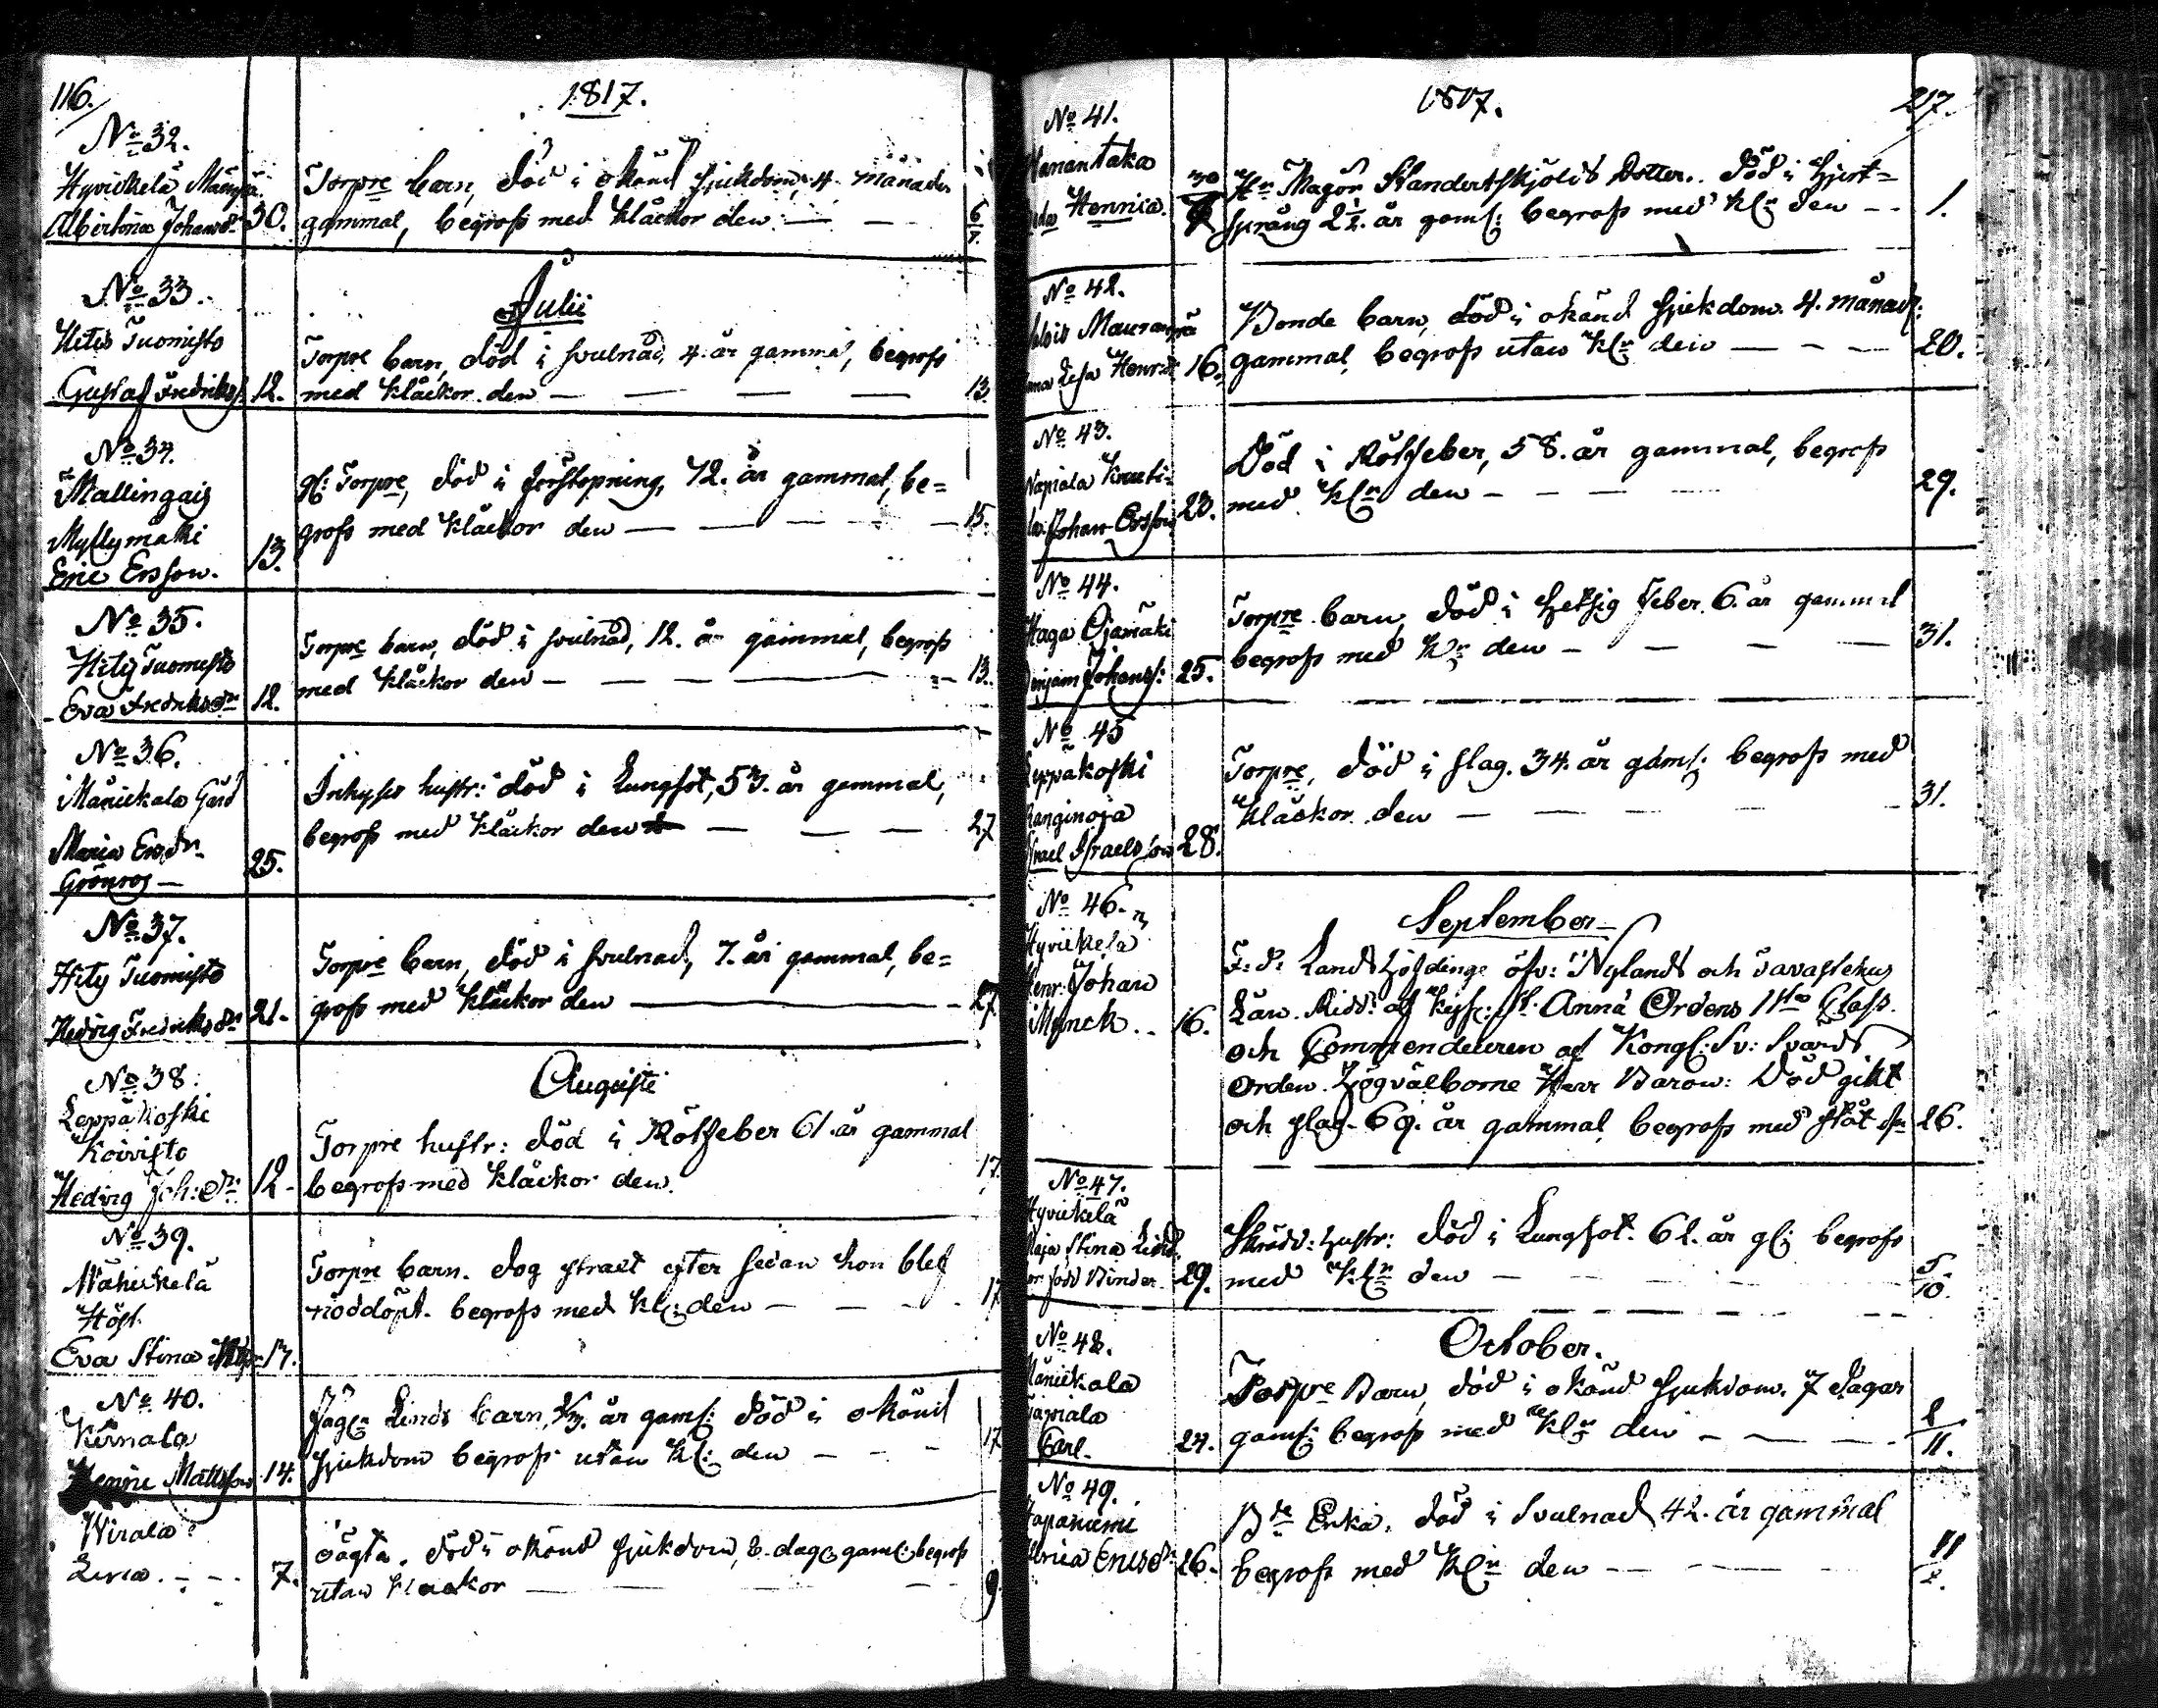 116.
1817.
No 32.
Hyvickelä
Albertina Johansdr
30.
Torpre barn, död i okänd sjukdom, 4 månader
gammal, begrofs med kläckor den
6/7.
Julii
No 33.
Hitis Tuomisto
Gustaf Fredrikss.
12.
Torpre barn, död i svulnad, 4. år gammal, begrofs
med kläckor den
13.
No 34.
Mallingais
Myllymäki
Eric Ersson.
13.
gl: Torpre, död i förstopning, 72. år gammal, be=
grofs med kläckor den
15.
No 35.
Hitis Tuomisto
Eva Fredriksdr
12.
Torpre barn, död i svulnad, 12. år gammal, begrofs
med kläckor den
13.
No 36.
Mänickala Gård
Maria Ersdr
Grönros
25.
Inhyses hustr: död i Lungsot, 53. år gammal,
begrofs med kläckor den
27
No 37.
Hitis Tuomisto
Hedvig Fredriksdr
21.
Torpre barn, död i svulnad, 7. år gammal, be=
grofs med kläckor den
27
Augusti
No 38.
Leppäkoski
Koivisto
Hedvig Joh:dr:
12.
Torpre hustr: död i Rötfeber 61. år gammal
begrofs med kläckor den.
17.
No 39.
Mähickelä
Höst
Eva Stina
17.
Torpre barn. dog straxt efter sedan hon blef
nöddöpt. begrofs med Kl: den
17
No 40.
Kernala
Mattsson
14.
Linds barn, år gaml: död i okänd
sjukdom begrofs utan Kl: den
17
Wirala
Lena.
7.
oägta. död i okänd sjukdom, 8. dag: gaml: begrofs
utan klackor
9.
1817.
217.
No 41.
Hanantaka
Hennica.
30
Hr Magor Standertskjölds Dotter. död i Hjert=
språng 2½. år gaml: begrofs med Kl: den
1.
No 42.
Lisa Henrdr
16.
Bonde barn, död i okänd sjukdom. 4. månad:
gammal, begrofs utan Kl: den
20.
No 43.
Napiala
Johan Ersson
23.
Död i Rötfeber, 58. år gammal, begrofs
med Kl: den
29.
No 44.
Haga Ojamäki
Benjam Johans:
25.
Torpre barn, död i hetsig feber. 6. år gammal
begrofs med Kl: den
31.
No 45
Leppäkoski
Ranginoja
Israel Israelsson
28.
Torpre, död i slag. 34. år gaml: begrofs med
kläckor den
31.
September
No 46.
Hyvickelä
Henr: Johan
Munck.
16.
F:d: Landshöfdinge öfv: Nylands och Tavastehus
Län. Ridd: af Kejs: St. Annä Ordens 1sta Class.
och Commendeuren af Kongl: Sv: Svärds
Orden. Högvälborne Herr Baron: Död gikt
och slag. 69. år gammal, begrofs med ståt den
26.
No 47.
Hyvickelä
Maja Stina Lind
född Binder
29.
Skrädd: hustr: död i Lungsot. 62. år gl: begrofs
med Kl: den
5/10.
October.
No 48.
Mänickala
Carl.
24.
Torpre Barn, död i okänd sjukdom. 7 dagar
gaml: begrofs med Kl: den
2/11.
No 49.
Hapaniemi
Ulrica Ericsdr
26.
Bde Enka. död i Svulnad 42. år gammal
begrofs med Kl: den
2.